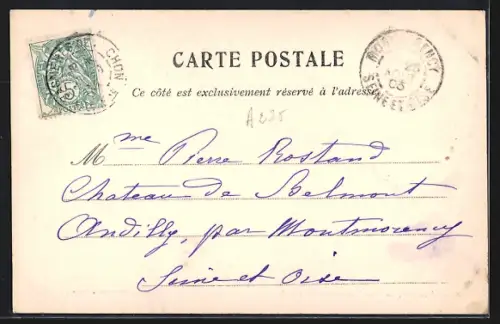 CHON
MONTMORENCY
03
SEINE ET OISE
CARTE POSTALE
Ce côté est exclusivement réservé à l'adresse
A235
Mme Pierre Rostand
Chateau de Belmont
Andilly, par Montmorency
Seine et Oise